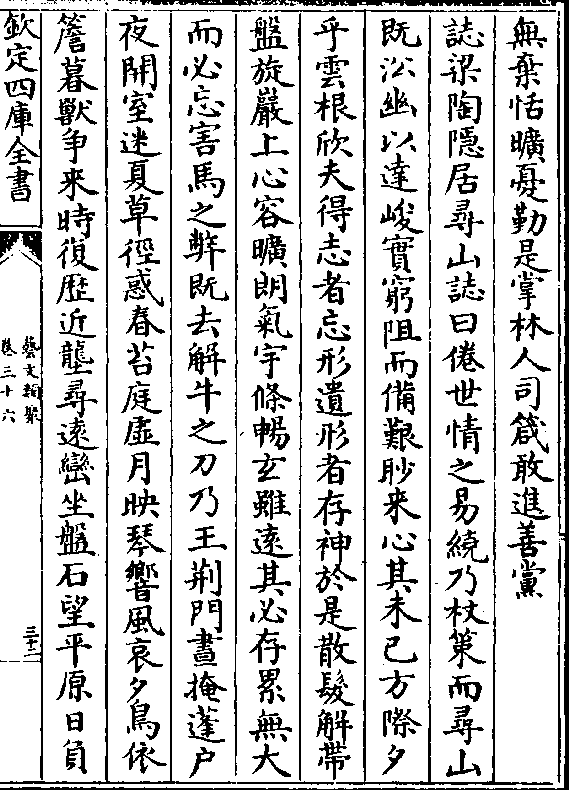 無棄恬曠憂勤是掌林人司箴敢進善黨
誌梁陶隱居尋山誌曰倦世情之易繞乃杖策而尋山
既沿幽以達峻實窮阻而備艱眇来心其未已方際夕
乎雲根欣夫得志者忘形遺形者存神於是散髮解帶
盤旋巖上心容曠朗氣宇條暢玄雖遠其必存累無大
而必忘害馬之弊既去解牛之刀乃王荆門晝掩蓬户
夜開室迷夏草徑惑春苔庭虛月映琴響風哀夕鳥依
簷暮獸争来時復歴近壟尋遠巒坐盤石望平原日負
欽定四庫全書
藝文類聚
卷三十六
三十二